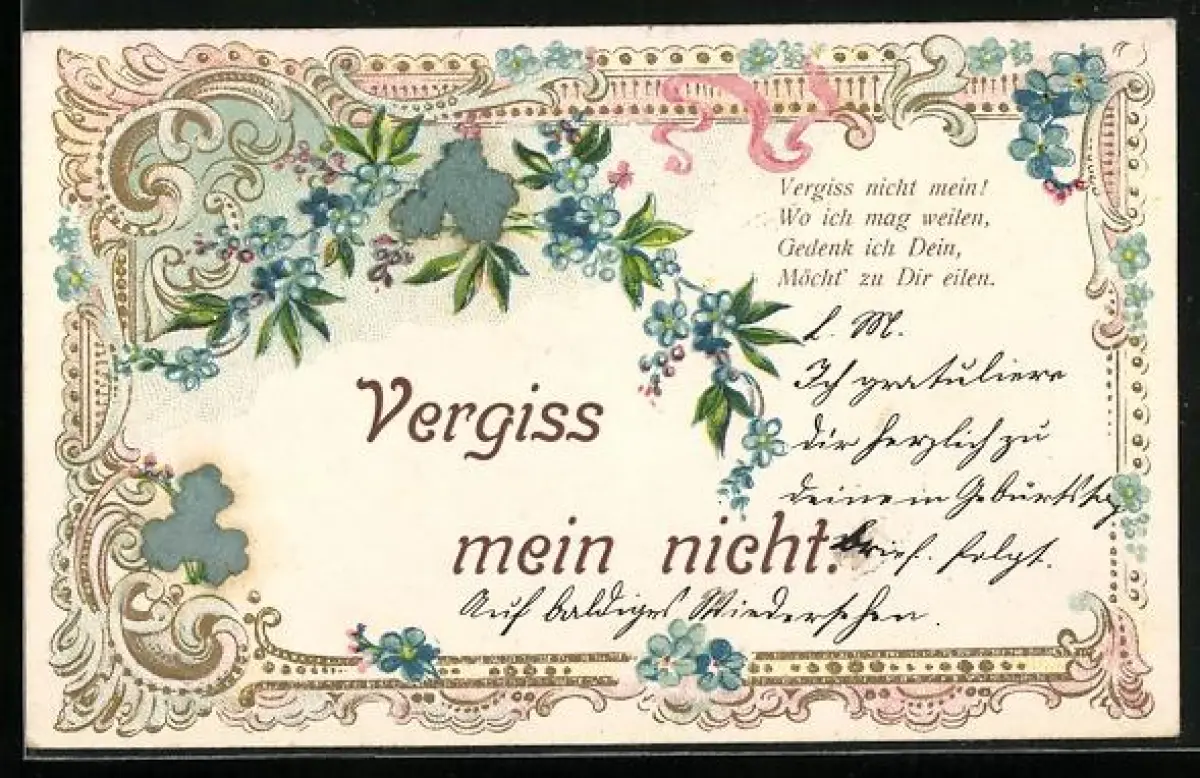 Vergiss nicht mein!
Wo ich mag weilen,
Gedenk ich Dein,
Möcht' zu Dir eilen.
L. M.
Ich gratuliere
dir herzlich zu
deinem Geburtstag
Brief. folgt.
Vergiss
mein nicht.
Auf baldiges Wiedersehen.